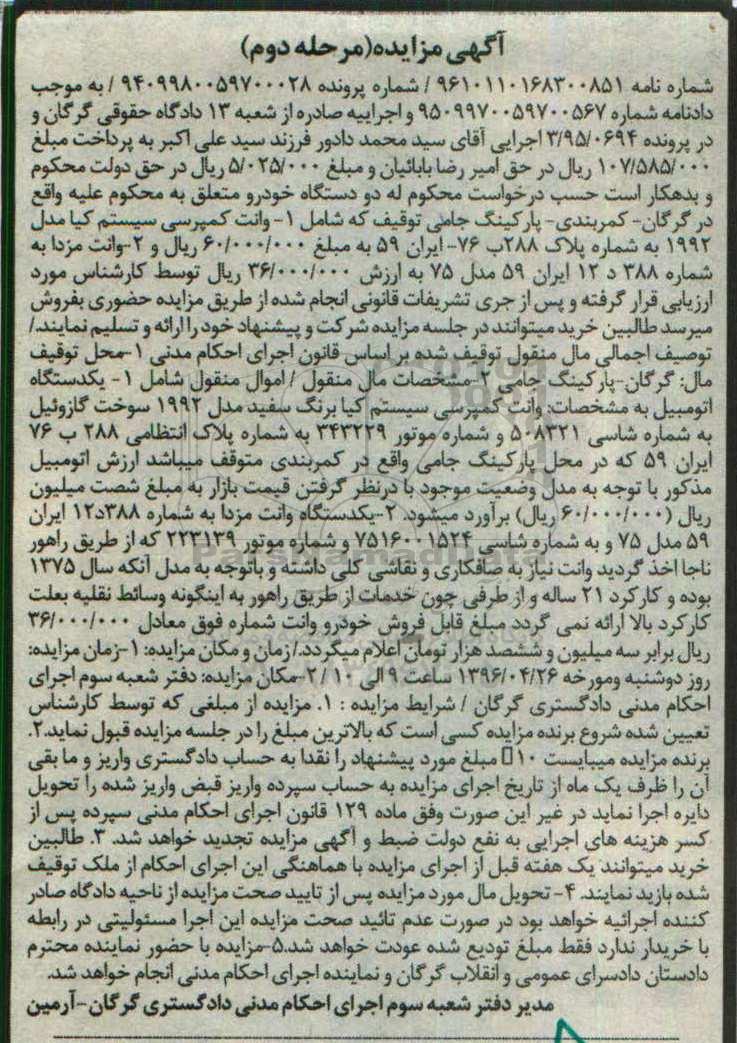 آگهی مزایده(مرحله دوم)
شماره نامه ۹۶۱۰۱۱۰۱۶۸۳۰۰۸۵۱ / شماره پرونده ۹۴۰۹۹۸۰۰۵۹۷۰۰۰۲۸ / به موجب
دادنامه شماره ۹۵۰۹۹۷۰۰۵۹۷۰۰۵۶۷ و اجراییه صادره از شعبه ۱۳ دادگاه حقوقی گرگان و
در پرونده ۳/۹۵/۰۶۹۴ اجرایی آقای سید محمد دادور فرزند سید علی اکبر به پرداخت مبلغ
۱۰۷/۵۸۵/۰۰۰ ریال در حق امیر رضا بابائیان و مبلغ ۵/۰۲۵/۰۰۰ ریال در حق دولت محکوم
و بدهکار است حسب درخواست محکوم له دو دستگاه خودرو متعلق به محکوم علیه واقع
در گرگان- کمربندی- پارکینگ جامی توقیف که شامل ۱- وانت کمپرسی سیستم کیا مدل
۱۹۹۲ به شماره پلاک ۲۸۸ب ۷۶- ایران ۵۹ به مبلغ ۶۰/۰۰۰/۰۰۰ ریال و ۲-وانت مزدا به
شماره ۳۸۸ د ۱۲ ایران ۵۹ مدل ۷۵ به ارزش ۳۶/۰۰۰/۰۰۰ ریال توسط کارشناس مورد
ارزیابی قرار گرفته و پس از جری تشریفات قانونی انجام شده از طریق مزایده حضوری بفروش
میرسد طالبین خرید میتوانند در جلسه مزایده شرکت و پیشنهاد خود را ارائه و تسلیم نمایند./
توصیف اجمالی مال منقول توقیف شده بر اساس قانون اجرای احکام مدنی ۱-محل توقیف
مال: گرگان-پارکینگ جامی ۲-مشخصات مال منقول / اموال منقول شامل ۱- یکدستگاه
اتومبیل به مشخصات: وانت کمپرسی سیستم کیا برنگ سفید مدل ۱۹۹۲ سوخت گازوئیل
به شماره شاسی ۵۰۸۳۲۱ و شماره موتور ۳۴۳۲۲۹ به شماره پلاک انتظامی ۲۸۸ ب ۷۶
ایران ۵۹ که در محل پارکینگ جامی واقع در کمربندی متوقف میباشد ارزش اتومبیل
مذکور با توجه به مدل وضعیت موجود با درنظر گرفتن قیمت بازار به مبلغ شصت میلیون
ریال (۶۰/۰۰۰/۰۰۰ ریال) برآورد میشود. ۲-یکدستگاه وانت مزدا به شماره ۳۸۸د۱۲ ایران
۵۹ مدل ۷۵ و به شماره شاسی ۷۵۱۶۰۰۱۵۲۴ و شماره موتور ۲۲۳۱۳۹ که از طریق راهور
ناجا اخذ گردید وانت نیاز به صافکاری و نقاشی کلی داشته و باتوجه به مدل آنکه سال ۱۳۷۵
بوده و کارکرد ۲۱ ساله و از طرفی چون خدمات از طریق راهور به اینگونه وسائط نقلیه بعلت
کارکرد بالا ارائه نمی گردد مبلغ قابل فروش خودرو وانت شماره فوق معادل ۳۶/۰۰۰/۰۰۰
ریال برابر سه میلیون و ششصد هزار تومان اعلام میگردد./زمان و مکان مزایده: ۱-زمان مزایده:
روز دوشنبه ومورخه ۱۳۹۶/۰۴/۲۶ ساعت ۹ الی ۱۰ / ۲-مکان مزایده: دفتر شعبه سوم اجرای
احکام مدنی دادگستری گرگان / شرایط مزایده : ۱. مزایده از مبلغی که توسط کارشناس
تعیین شده شروع برنده مزایده کسی است که بالاترین مبلغ را در جلسه مزایده قبول نماید.۲.
برنده مزایده میبایست ۱۰ مبلغ مورد پیشنهاد را نقدا به حساب دادگستری واریز و ما بقی
آن را ظرف یک ماه از تاریخ اجرای مزایده به حساب سپرده واریز قبض واریز شده را تحویل
دایره اجرا نماید در غیر این صورت وفق ماده ۱۲۹ قانون اجرای احکام مدنی سپرده پس از
کسر هزینه های اجرایی به نفع دولت ضبط و آگهی مزایده تجدید خواهد شد. ۳. طالبین
خرید میتوانند یک هفته قبل از اجرای مزایده با هماهنگی این اجرای احکام از ملک توقیف
شده بازید نمایند. ۴- تحویل مال مورد مزایده پس از تایید صحت مزایده از ناحیه دادگاه صادر
کننده اجرائیه خواهد بود در صورت عدم تائید صحت مزایده این اجرا مسئولیتی در رابطه
با خریدار ندارد فقط مبلغ تودیع شده عودت خواهد شد.۵-مزایده با حضور نماینده محترم
دادستان دادسرای عمومی و انقلاب گرگان و نماینده اجرای احکام مدنی انجام خواهد شد.
مدیر دفتر شعبه سوم اجرای احکام مدنی دادگستری گرگان-آرمین